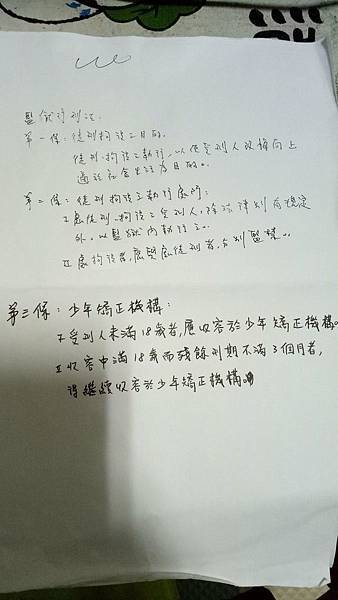 監獄行刑法.
第一條:徒刑拘役之目的.
徒刑.拘役之執行,以使受刑人改悔向上
適於社會生活為目的。
第二條:徒刑拘役之執行處所:
I處徒刑.拘役之受刑人,除法律別有規定
外.以監獄內執行之。
II處拘役者,應與處徒刑者,分別監禁。
第三條:少年矯正機構:
I受刑人未滿18歲者,應收容於少年矯正機構。
II收容中滿18歲而殘餘刑期不滿3個月者,
得繼續收容於少年矯正機構。